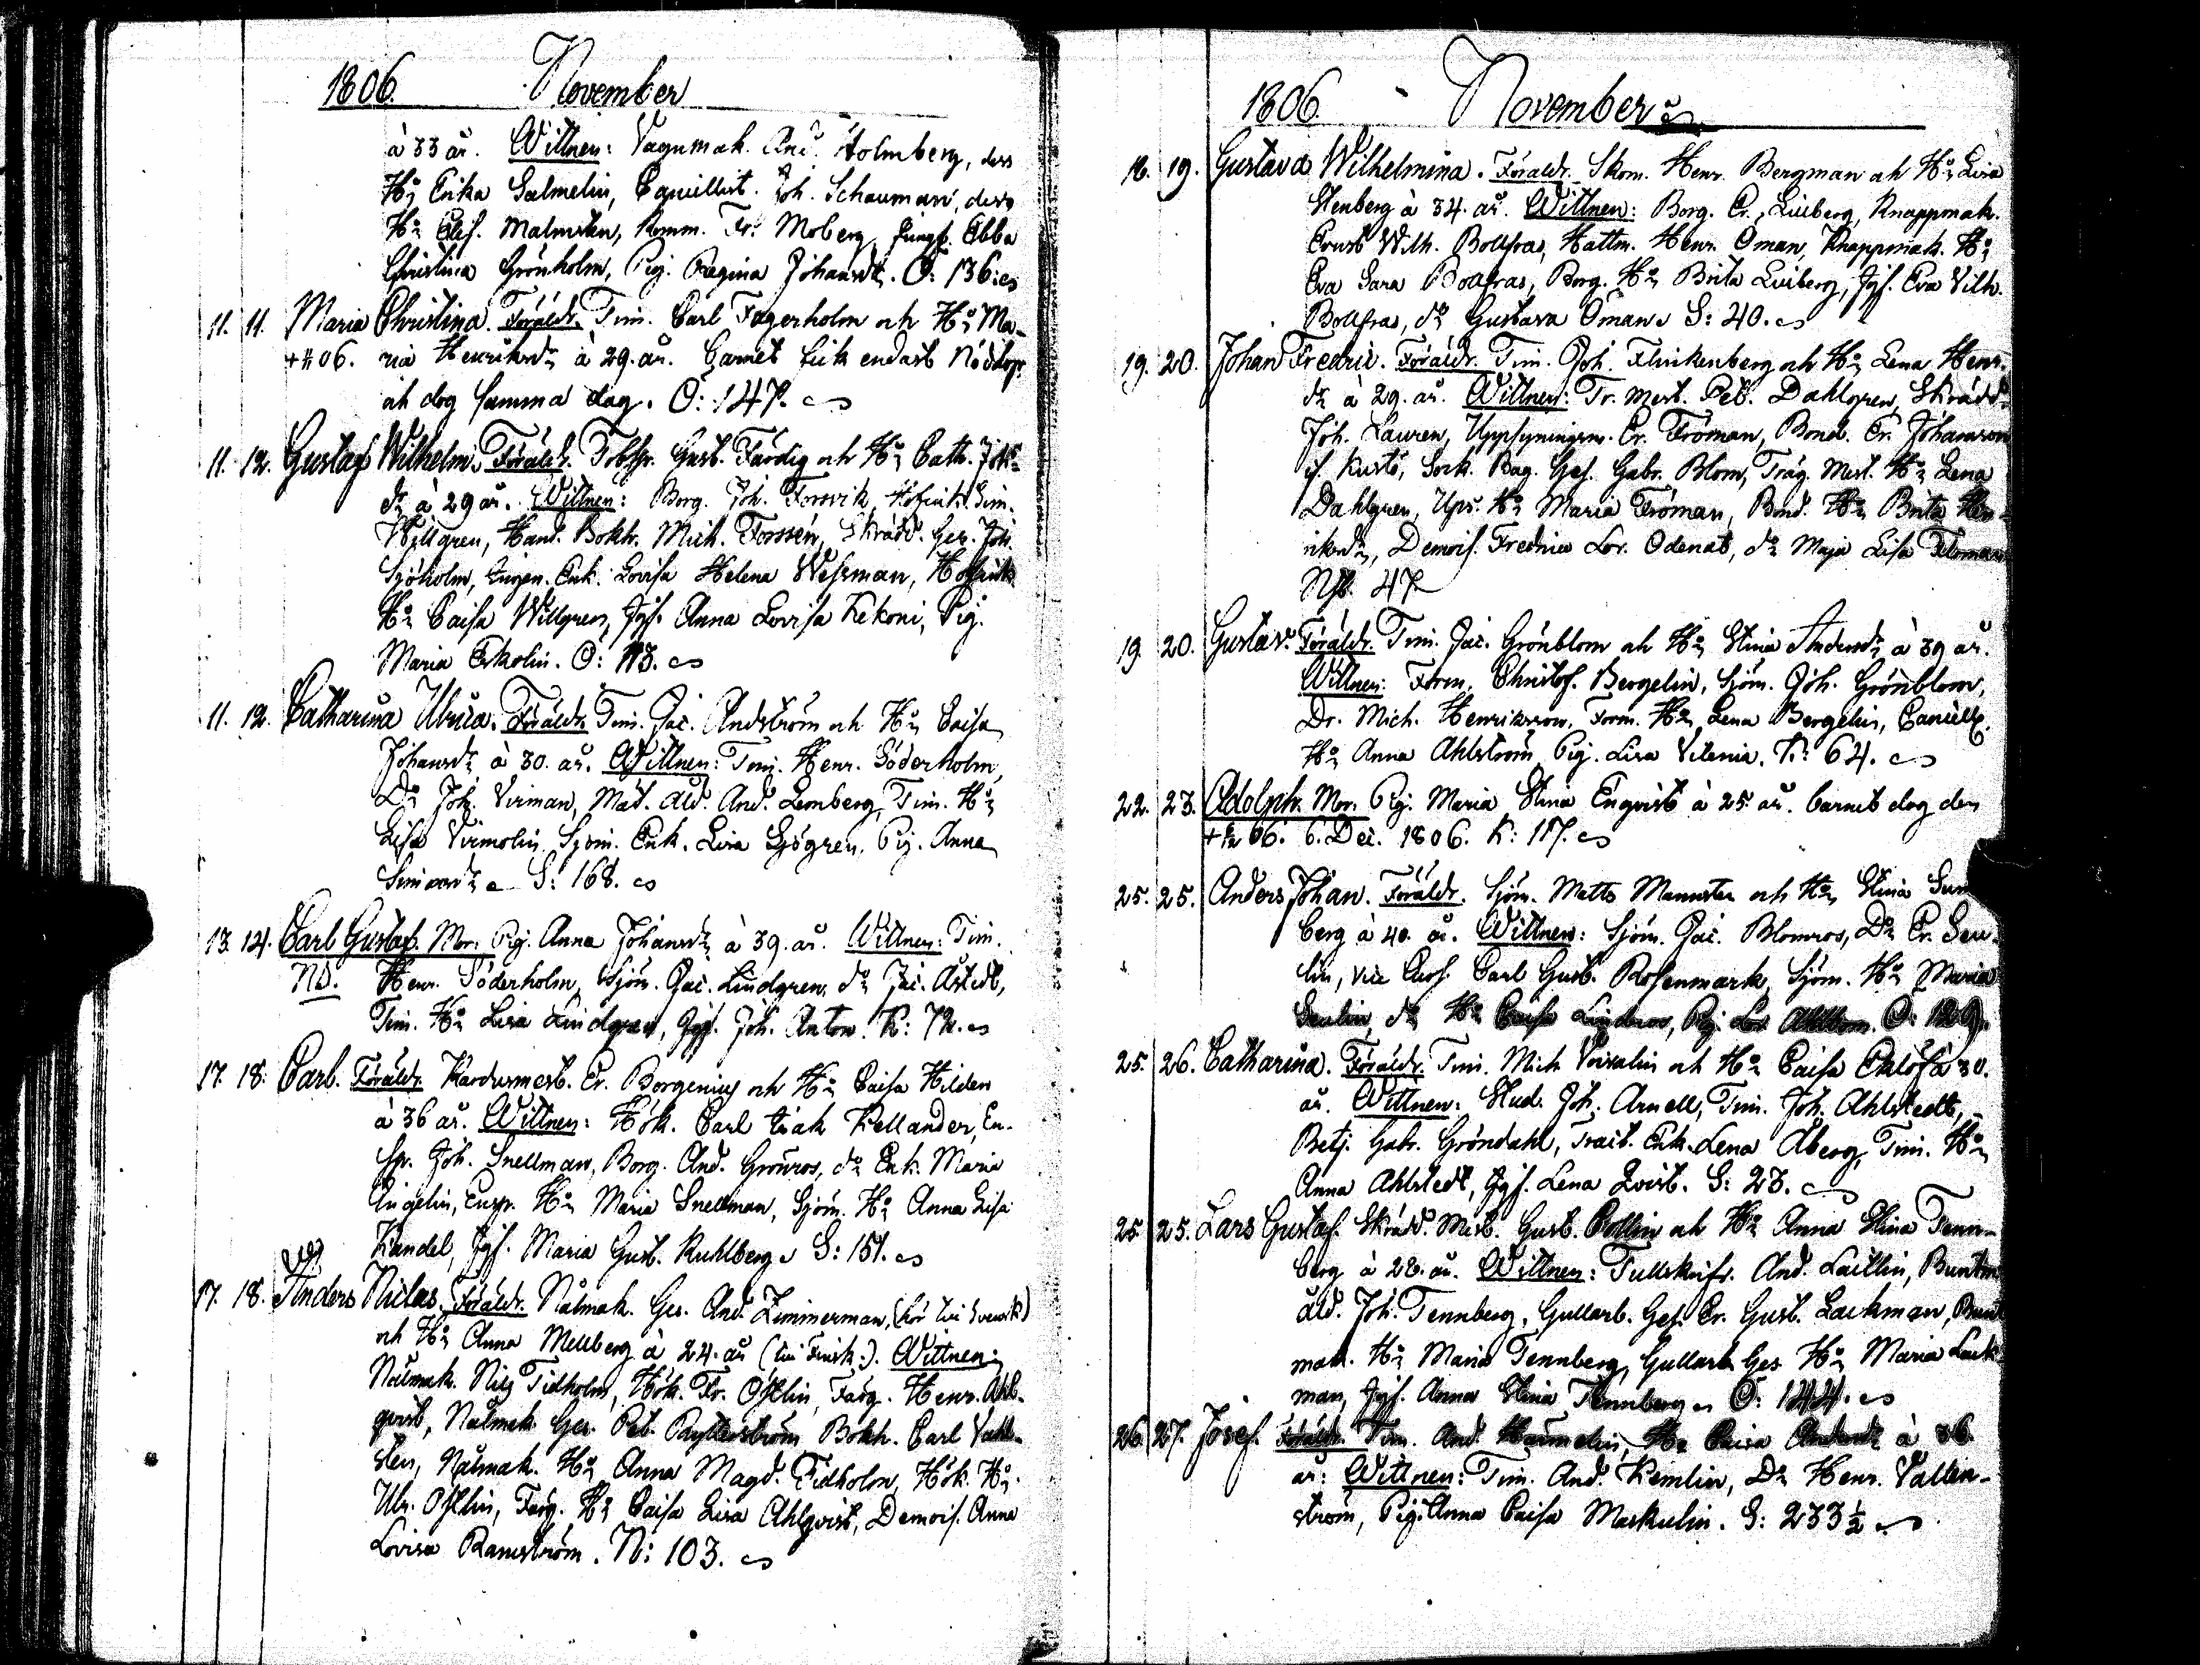 1806. November
à 33 år. Wittnen: Vagnmak. And. Holmberg, dess
Hu Erika Salmelin, Canillist. Joh. Schauman, dess
Hu Elis. Malmsten, Komm. Fr. Moberg, Jungf. Ebba
Christina Grönholm, Pig. Regina Johansdr. Ö: 136.
11. 11. Maria Christina. Föräldr. Tim. Carl Fagerholm och Hu Ma-
ria Henriksdr à 29. år. Barnet fick endast Nöddop
och dog samma dag. Ö: 147.
11. 12. Gustaf Wilhelm. Föräldr. Tobsp. Gust. Färdig och Hu Cath. Joh-
dr à 29 år. Wittnen: Borg. Joh. Forsvik, Sim.
Willgren, Hand. Bokh. Mich. Forssén, Skrädd. Ges. Joh.
Sjöholm, Enk. Lovisa Helena Wessman,
Hu Caisa Willgren, Jgf. Anna Lovisa Kekoni, Pig.
Maria Eskolin. Ö: 113.
11. 12. Catharina Ulrica. Föräldr. Tim. Jac. Andström och Hu Caisa
Johansdr à 30. år. Wittnen: Tim. Henr. Söderholm,
Do Joh. Virman, Mät. Åld. And. Lemberg, Tim. Hu
Lisa Virmolin, Sjöm. Enk. Lisa Sjögren, Pig. Anna
Simonsdr S: 168.
13. 14. Carl Gustaf. Mor: Pig. Anna Johansdr à 39. år. Wittnen: Tim.
Henr. Söderholm, Sjöm. Jac. Lindgren, do Jac. Åstedt,
Tim. Hu Lisa Lindgren, Jgf. Joh. Anton. K: 72.
17. 18. Carl. Föräldr. Kardusmest. Er. Borgenius och Hu Caisa Hilden
à 36 år. Wittnen: Hök. Carl Isak Kellander, En-
sp. Joh. Snellman, Borg. And. Grönros, do Enk. Maria
Ensp. Hu Maria Snellman, Sjöm. Hu Anna Lisa
Kandel, Jgf. Maria Gust. Kuhlberg S: 151.
17. 18. Anders Niclas. Föräldr. Nålmak. Ges. And. Zimmerman, (hör till Svensk)
och Hu Anna Mellberg à 24. år (till Finsk.). Wittnen:
Nålmak. Nils Tidholm, Hök. Fr. Östlin, Färg. Henr. Ahl-
qvist, Nålmak. Ges. Pet. Rytterström, Bokh. Carl Vahl-
sten, Nålmak. Hu Anna Magd. Tidholm, Hök. Hu
Ulr. Östlin, Färg. Hu Caisa Lisa Ahlqvist, Demois. Anna
Lovisa Ramström. N: 103.
1806. November
18. 19. Gustava Wilhelmina. Föräldr. Skom. Henr. Bergman och Hu Lisa
Stenberg à 34. år. Wittnen: Borg. Er. Liliberg, Knappmak.
Ernst Wilh. Bollfras, Hattm. Henr. Öman, Knappmak. Hu
Eva Sara Bollfras, Borg. Hu Brita Liliberg, Jgf. Eva Vilh.
Bollfras, do Gustava Öman. S: 40.
19. 20. Johan Fredric. Föräldr. Tim. Joh. Flinkenberg och Hu Lena Henr.
dr à 29. år. Wittnen: Tr. Mest. Pet. Dahlgren, Skrädd.
Joh. Lauren, Uppsyningsm. Er. Fröman, Bond. Er. Johansson
if. Kustö, Sock. Bag. Ges. Gabr. Blom, Träg. Mest. Hu Lena
Dahlgren, Ups. Hu Maria Fröman, Bond. Hu Brita Hen-
riksdr, Demois. Fredrica Lov. Odenat, do Maja Lisa
47
19. 20. Gustav. Föräldr. Tim. Jac. Grönblom och Hu Stina Andersdr à 39 år.
Wittnen: Form. Christof. Bergelin, Sjöm. Joh. Grönblom,
Dr. Mich. Henriksson, Form. Hu Lena Bergelin,
Hu Anna Ahlström, Pig. Lisa Vilenia. K: 64.
22. 23. Adolph. Mor: Pig. Maria Stina Enqvist à 25 år. Barnet dog den
6. Dec. 1806. K: 117.
25. 25. Anders Johan. Föräldr. Sjöm. Matts Mannsten och Hu Stina
berg à 40. år. Wittnen: Sjöm. Jac. Blomros, Do Er. Seu-
lin, vice Carl Gust. Rosenmark, Sjöm. Hu Maria
Seulin, do Hu Caisa Lindroos, Pig. Lov. Ahlbom. Ö: 129.
25. 26. Catharina. Föräldr. Tim. Mich. Voivalin och Hu Caisa Eklöf à 30.
år. Wittnen: Stud. Joh. Arnell, Tim. Joh. Ahlstedt,
Betj. Gabr. Gröndahl, Enk. Lena Åberg, Tim. Hu
Anna Ahlstedt, Jgf. Lena Qvist. S: 23.
25. 25. Lars Gustaf. Skrädd. Mest. Gust. Collin och Hu Anna Stina Tenn-
berg à 28. år. Wittnen: Tullskrifv. And. Laitlin, Buntm.
Åld. Joh. Tennberg, Gullarb. Ges. Er. Gust. Lackman,
mak. Hu Maria Tennberg, Gullarb. Ges. Hu Maria Lack
man, Jgf. Anna Stina Tennberg. Ö: 144.
26. 27. Josef. Föräldr. Tim. And. Haumelin, Hu Caisa Andersdr à 36
år: Wittnen: Tim. And. Kemlin, Do Henr. Vallen-
ström, Pig. Anna Caisa Maskulin. S: 233½